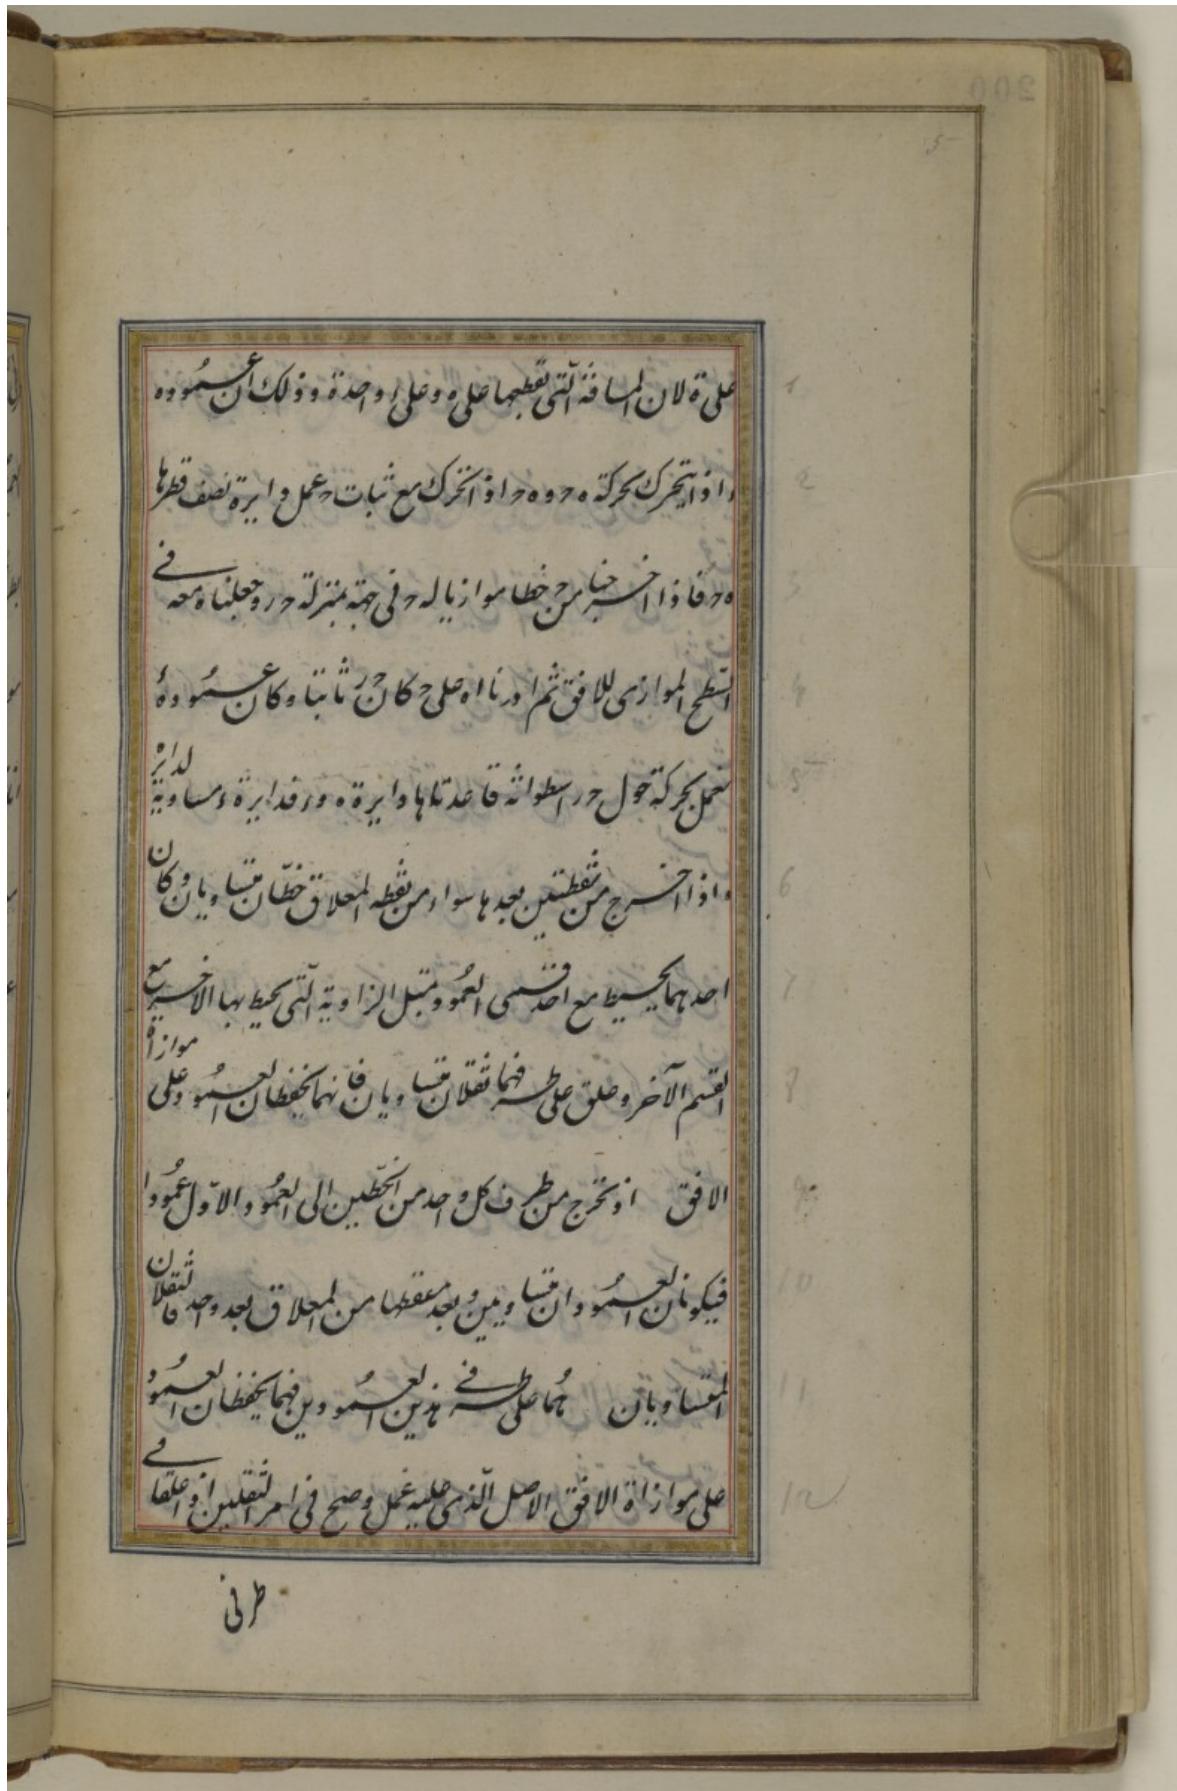 200
5
على ة لان المسافة التي تقطعها على ه وعلى واحدة وذلك ان عمود ه
واذا يتحرك بحركة ه ح و ه ح اذا تحرك مع ثبات ح عمل دايرة نصف قطرها
ه ح فاذا اخرجنا من ح خطا موازيا له ح في جهته بمنزلة ح ر وجعلناه معه في
السطح الموازي للافق ثم ادرناه على ح كان ح ر ثابتا وكان عمود ه
يعمل بحركة حول ح ر اسطوانة قاعدتاها دايرة ه ور فدايرة مساوية لدايرة
واذا اخرج من نقطتين بعدها سواء من نقطه المعلاق خطان متساويان وكان
احدهما يحيط مع احد قسمي العمود مثل الزاوية التي يحيط بها الاخير مع
القسم الآخر وعلق على طرفهما ثقلان متساويان فانهما يحفظان العمود على موازاة
الافق اذ نخرج من طرف كل واحد من الخطين الى العمود الاول عمودا
فيكونان العمودان متساويين وبعد معقفها من المعلاق بعد واحد فالثقلان
المتساويان هما على طرفي هذين العمودين فهما يحفظان العمود
على موازاة الافق الاصل الذي عليه عمل وصح في امر الثقلين اذ اعلقا في
طرفي
1
2
3
4
5
6
7
8
9
10
11
12